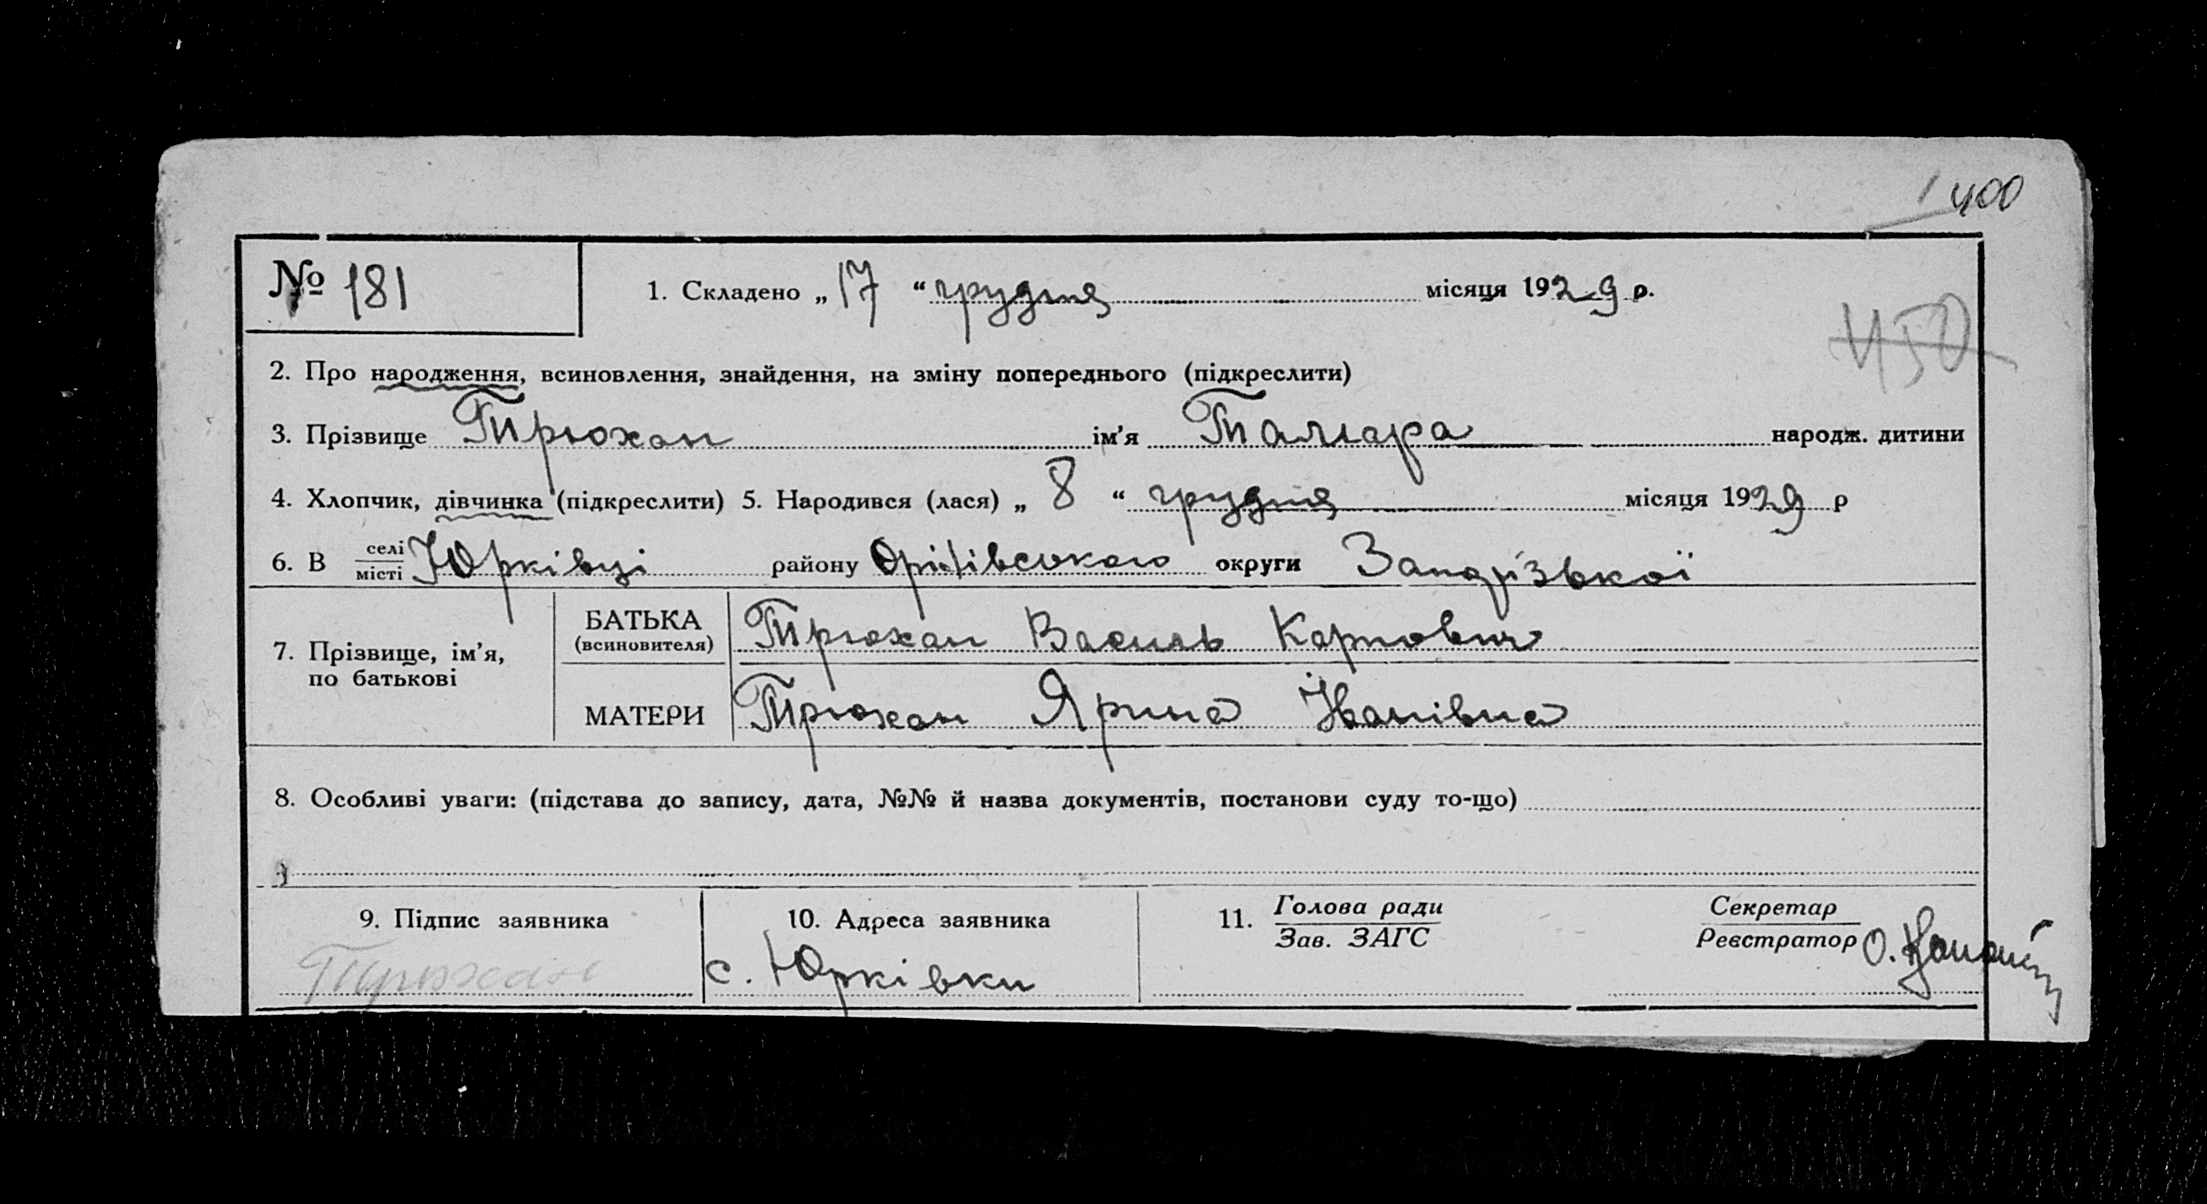 400
№ 181
1. Складено „ 17 “ грудня місяця 1929 р.
450
2. Про народження, всиновлення, знайдення, на зміну попереднього (підкреслити)
3. Прізвище Трюхан ім’я Тамара народж. дитини
4. Хлопчик, дівчинка (підкреслити) 5. Народився (лася) „ 8 “ грудня місяця 1929 р
6. В селі Юрківці району Оріхівського округи Запорізької
місті
7. Прізвище, ім’я,
по батькові
БАТЬКА
(всиновителя)
Трюхан Василь Карпович
МАТЕРИ
Трюхан Ярина Іванівна
8. Особливі уваги: (підстава до запису, дата, №№ й назва документів, постанови суду то-що)
9. Підпис заявника
Трюхан
10. Адреса заявника
с. Юрківки
11. Голова ради
Зав. ЗАГС
Секретар
Реєстратор О.